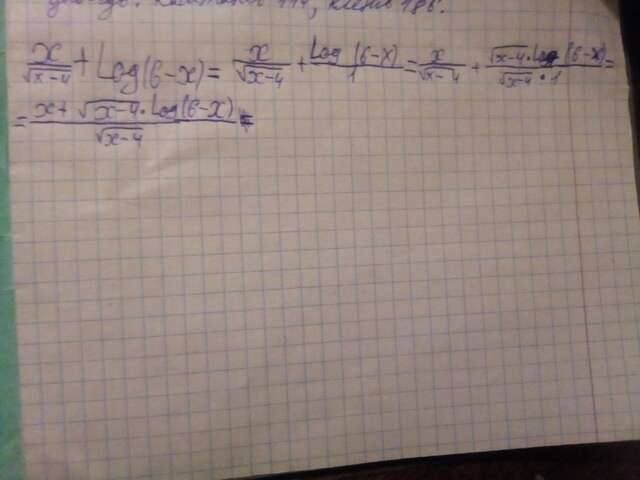 114, 186.
x/√x-4 + Log(6-x) = x/√x-4 + Log(6-x)/1 = x/√x-4 + √x-4·Log(6-x)/√x-4·1 =
= x+√x-4·Log(6-x)/√x-4 =